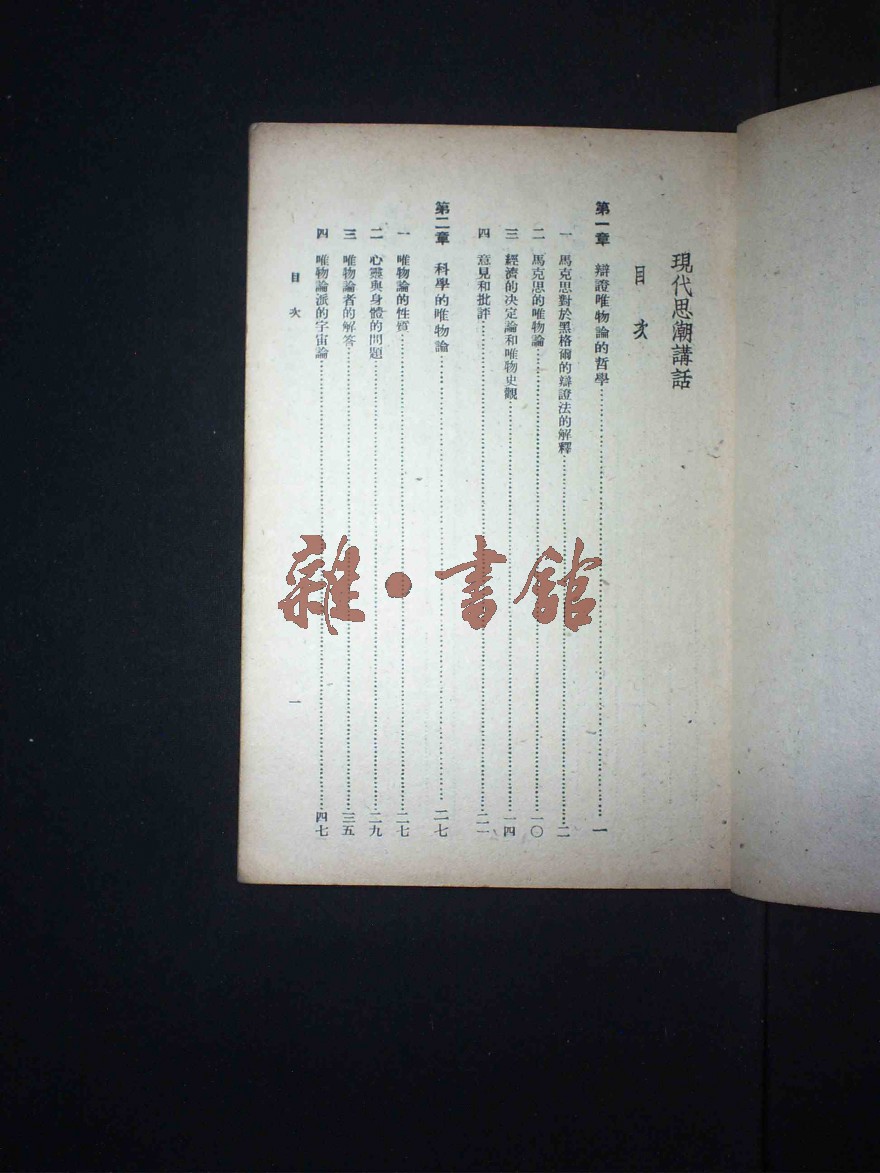 現代思潮講話
目次
第一章 辯證唯物論的哲學……一
一 馬克思對於黑格爾的辯證法的解釋……二
二 馬克思的唯物論……一〇
三 經濟的決定論和唯物史觀……一四
四 意見和批評……二一
第二章 科學的唯物論……二七
一 唯物論的性質……二七
二 心靈與身體的問題……二九
三 唯物論者的解答……三五
四 唯物論派的宇宙論……四七
目次 一
雜·書館